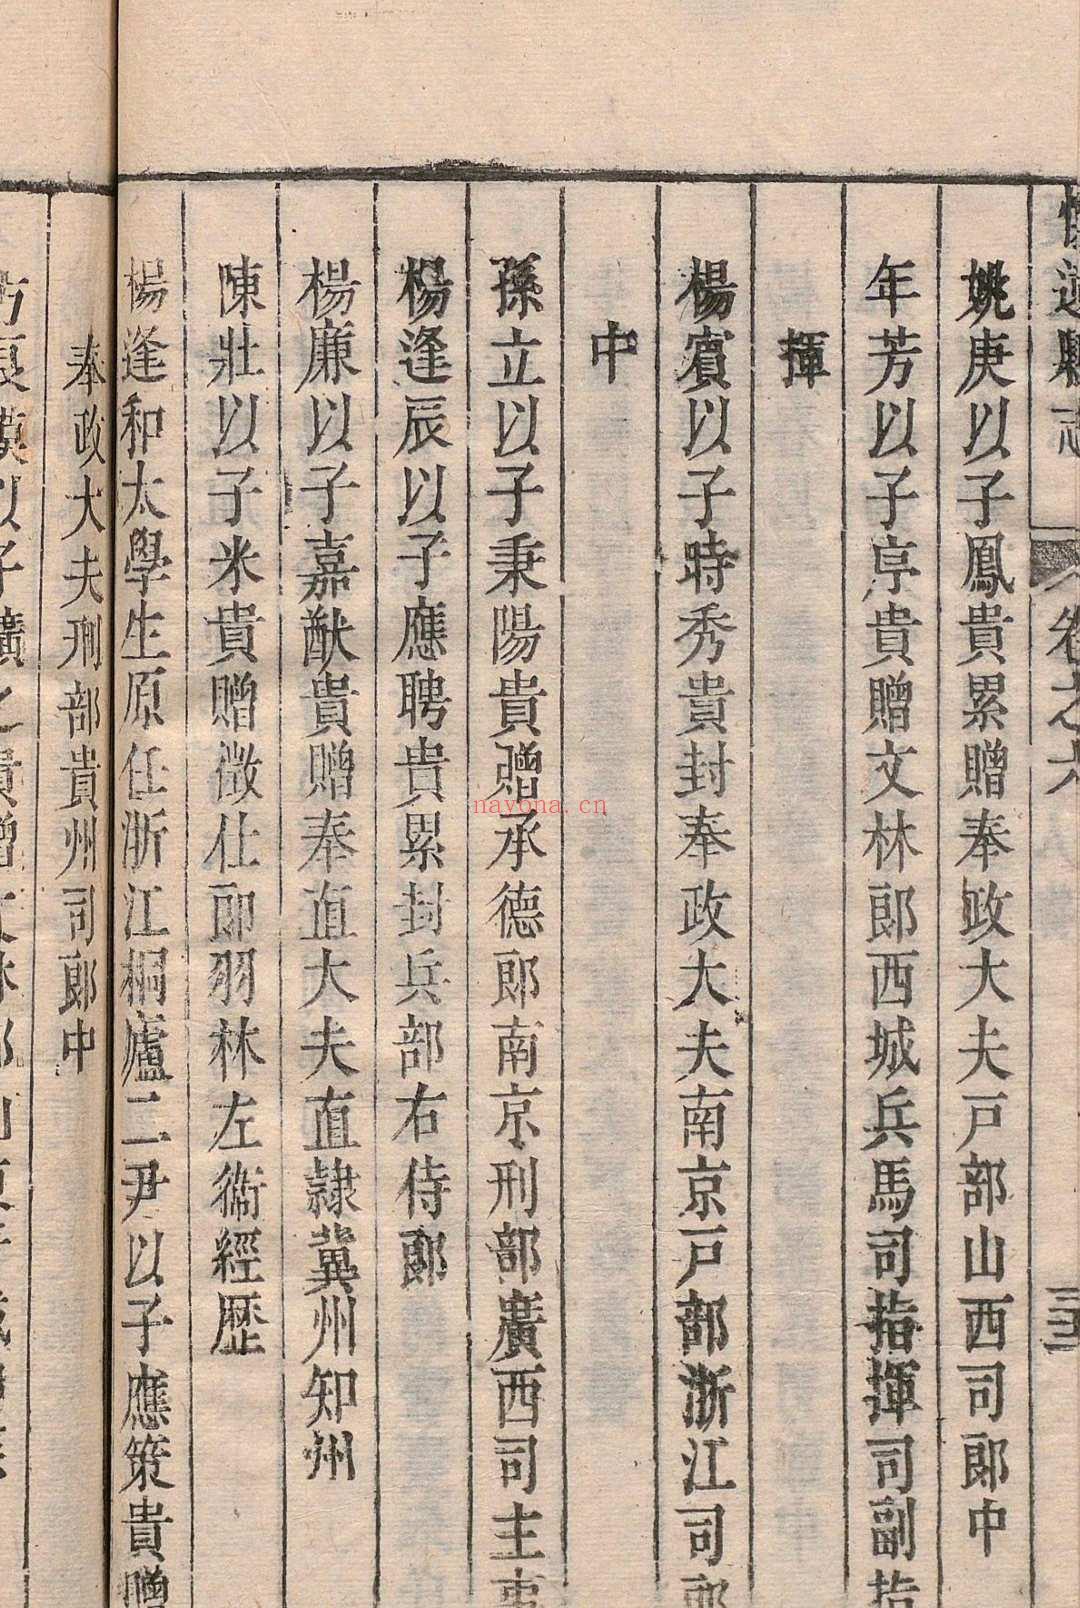 懷遠縣志 卷之六
姚庚以子鳳貴累贈奉政大夫戸部山西司郎中
年芳以子亨貴贈文林郎西城兵馬司指揮司副指
揮
楊賓以子時秀貴封奉政大夫南京戸部浙江司郎
中
孫立以子秉陽貴贈承德郎南京刑部廣西司主事
楊逢辰以子應聘貴累封兵部右侍郎
楊廉以子嘉猷貴贈奉直大夫直隷冀州知州
陳壯以子米貴贈徵仕郎羽林左衞經歷
楊逢和太學生原任浙江桐廬二尹以子應策貴贈
奉政大夫刑部貴州司郎中
nayona.cn